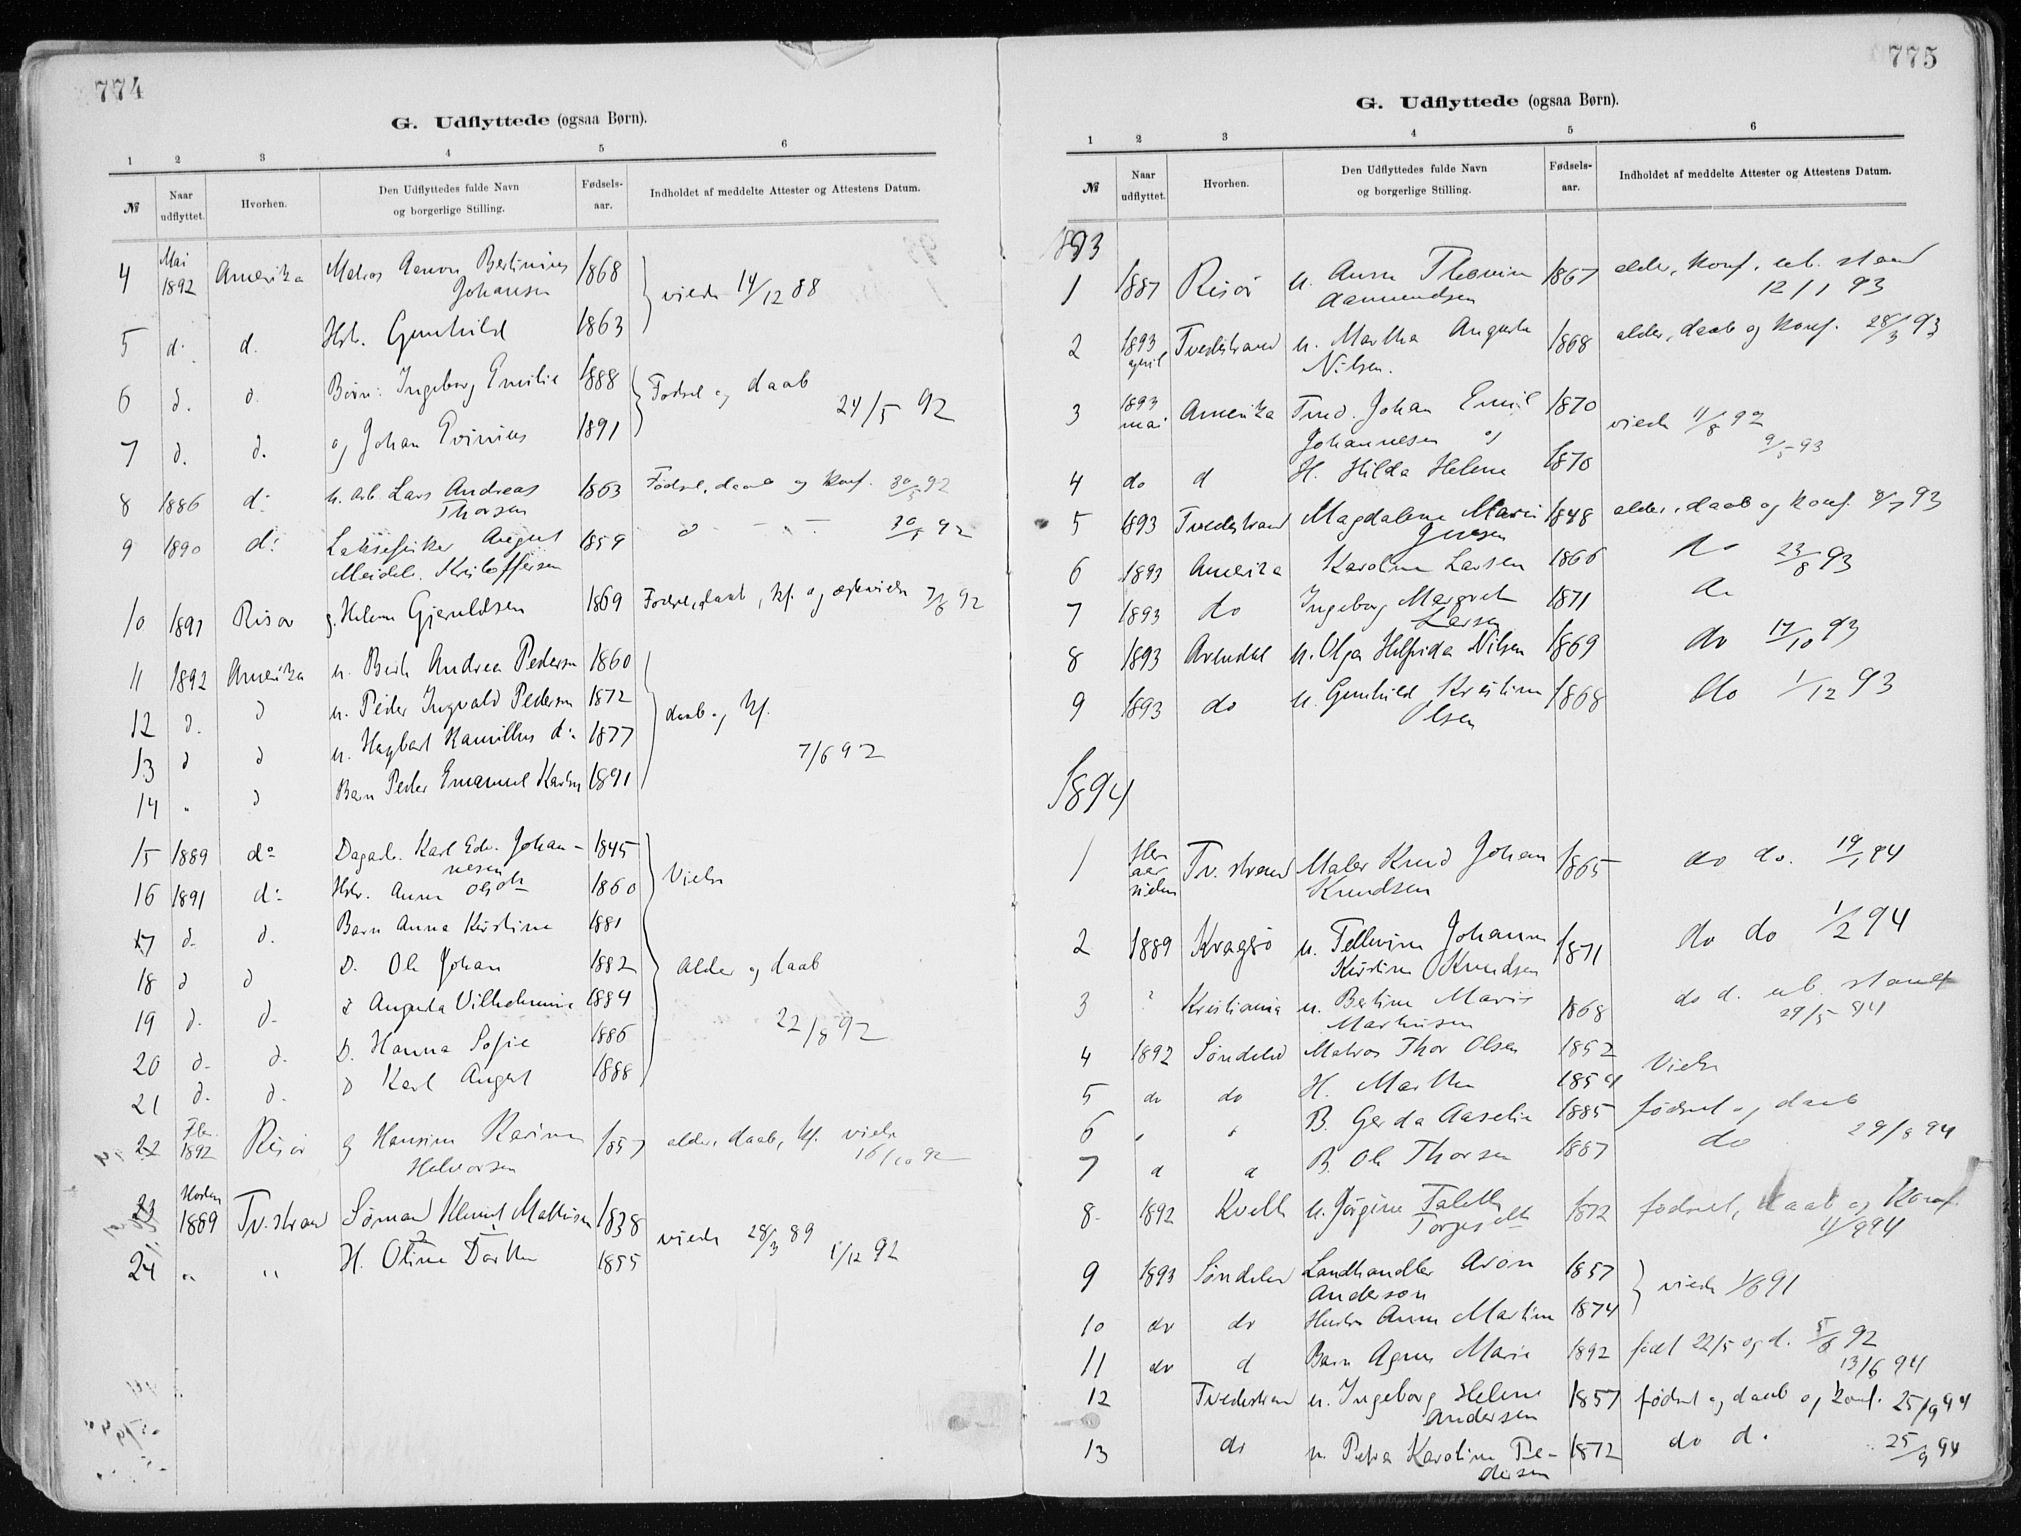 774
G. Udflyttede (ogsaa Børn).
1 2 3 4 5 6
№ Naar udflyttet. Hvorhen. Den Udflyttedes fulde Navn og borgerlige Stilling. Fødsels-aar. Indholdet af meddelte Attester og Attestens Datum.
4 Mai 1892 Amerika Matros Bertinius 1868 14/12 88
Johansen
5 d. d. Gunhild 1863
6 d. d. Børn: Ingeborg Emilie 1888 Fødsel og daab
24/5 92
7 d. d. og Johan 1891
8 1886 d: Lars Andreas 1863 Fødsel, daab og konf. 30/5 92
Thorsen
9 1890 d: August 1859 d 92
Kristoffersen
10 1891 Risør g. Helene Gjeruldsen 1869 Fødsel, daab, kf. og 92
11 1892 Amerika u. Andrea Pedersen 1860
12 d. d u. Peder Ingvald Pedersen 1872 daab og kf.
13 d d u. Kamillus d: 1877 7/6 92
14 " d Barn Peder Emanuel 1891
15 1889 do Dagarb. Karl Edv. Johan- 1845
nesen
16 1891 d: Anna 1860 Viede
17 d. d. Barn Anna Kirstine 1881
18 d d D. Ole Johan 1882 Alder og daab
19 d. d. d Augusta Vilhelmine 1884
22/8 92
20 d. d. D. Hanna Sofie 1886
21 d. d. D Karl August 1888
22 1892 Risør g Hansine Karine 1857 alder, daab, kf. viede
Halvorsen 16/10 92
23 Høsten 1889 Tv.strand Sømand Mathisen 1838 28/3 89
24 " " H. Oline Dorthe 1855 1/12 92
775
G. Udflyttede (ogsaa Børn).
1 2 3 4 5 6
№ Naar udflyttet. Hvorhen. Den Udflyttedes fulde Navn og borgerlige Stilling. Fødsels-aar. Indholdet af meddelte Attester og Attestens Datum.
1893
1 1887 Risør u. Anna 1867 alder, konf. ub. stand
Aanundsen 12/1 93
2 1893 april Tvedestrand u. Martha Augusta 1868 alder, daab og konf. 28/3 93
Nilsen.
3 1893 mai Amerika Johan Emil 1870 viede 11/8 92
Johannesen og 9/5 93
4 do d H. Hilda Helene 1870
5 1893 Tvedestrand Magdalene Marie 1848 alder, daab og konf. 93
Jensen
6 1893 Amerika Karoline Larsen 1866 do 23/8 93
7 1893 do Ingeborg Margrete 1871
Larsen
8 1893 Arendal u. Olga Helfrida Nilsen 1869 do 17/10 93
9 1893 do u. Gunhild Kristine 1868 do 1/12 93
Olsen
1894
1 Tv. strand Maler Knud Johan 1865 do do. 19/1 94
Knudsen
2 1889 Kragerø u. Johanne 1871 do do 1/2 94
Kirstine Knudsen
3 Kristiania u. Bertine Marie 1868 do d. ub. stand
Markusen 29/5 94
4 1892 Søndeled Matros Thor Olsen 1852 Viede
5 do do H. Marthe 1854
6 " " B. Gerda Aaselie 1885 fødsel og daab
29/8 94
7 " " B. Ole Thorsen 1887 do
8. 1892 u. Jørgine Taleth 1872 fødsel, daab og konf.
94
9 1893 Søndeled Landhandler Aron 1857
Anderson viede 91
10 do do Hustru Anne Martine 1874
11 do d Barn Agnes Marie 1892 født 22/5 og d. 5/6 92
13/6 94
12 Tvedestrand u. Ingeborg Helene 1857 fødsel og daab og konf. 25/9 94
Andersen
13 do u. Petra Karoline Pe- 1872 do d. 25/9 94
dersen